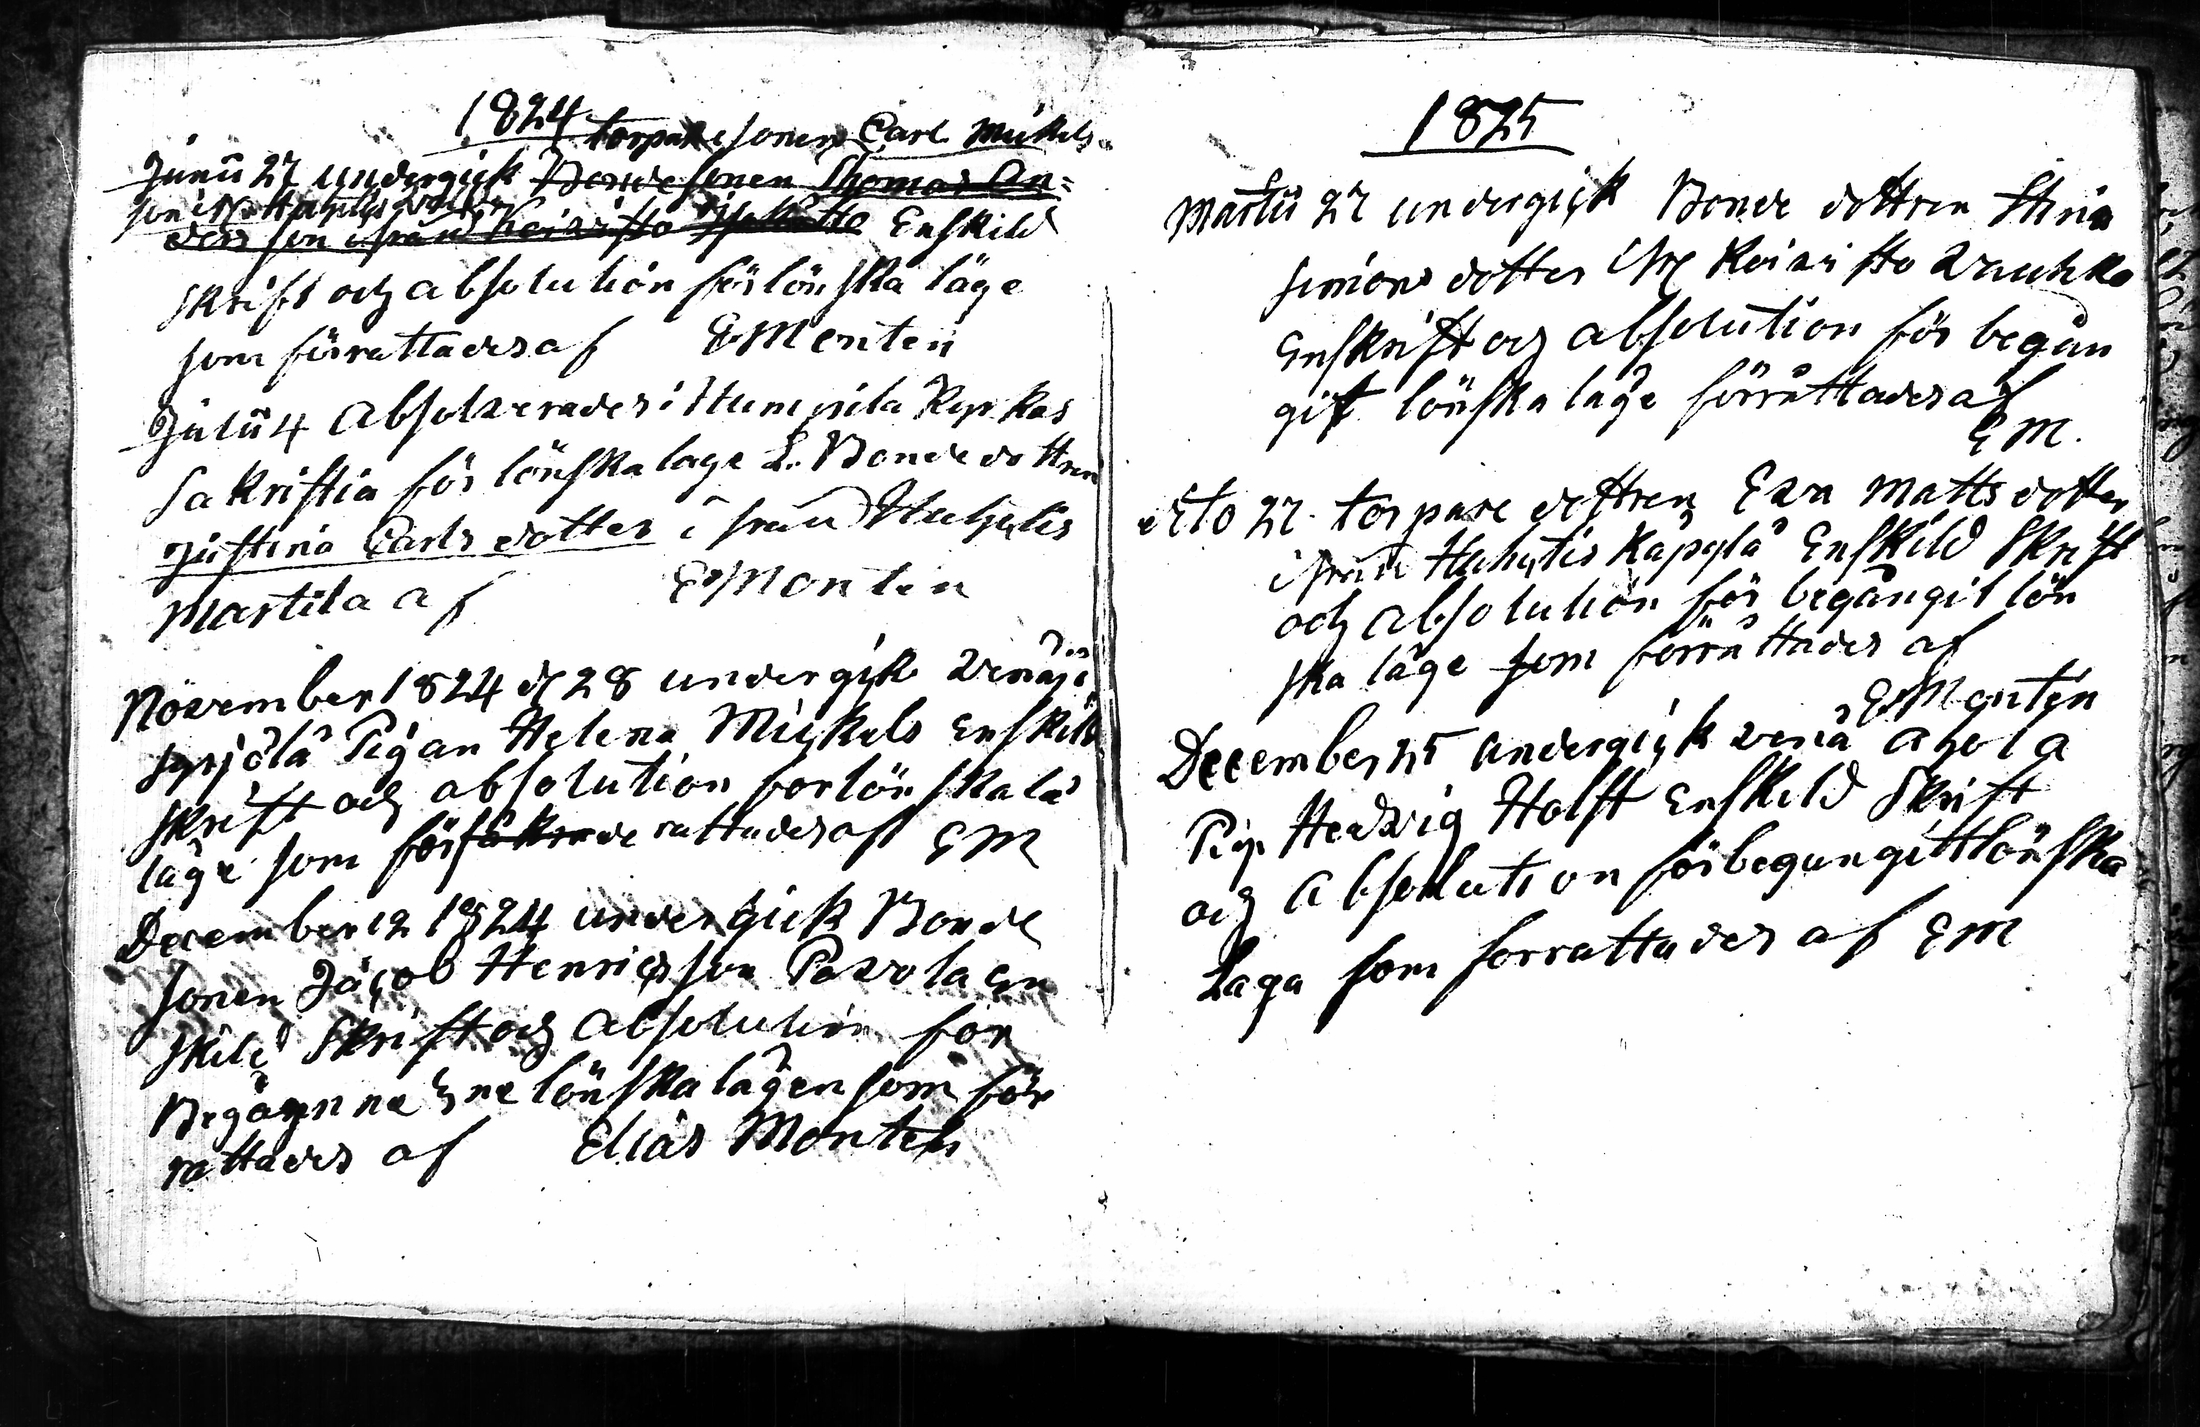 1824
torpare sonen Carl Mickels
Junii 27 undergick Bonde sonen Thomas An=
son
ders son ifrån Koivisto Enskild
skrift och absolution för lönska läge
som förrattades af EMonten
Julii 4 Absolverades i Humpila Kyrkas
sakristia för lönska lage L. Bonde dottren
Justina Carls dotter ifrån Huhtis
Martila af EMonten
November 1824 d 28 undergik Venäjä
syrjölä Pigan Helena Mickels Enskild
skrift och absolution for lönska lä
läge som förrattades af EM
December 12 1824 undergick Bonde
sonen Jacob Henricsson Pavola En
skild Skrift och absolution för
Begångne lönska lägen som för
rattades af Elias Monten
1825
Martii 27 undergick Bonde dottren Stina
Simons dotter Koivisto Vauhko
Enskrift och absolution för begån
git lönska läge förrättades af
EM.
dito 27 torpare dottren Eva Matts dotter
ifrån Huhtis Käpylä Enskild Skrift
och absolution för begångit lön
ska läge som förrättades af
EMonten
December 25 undergick venä ahola
Pig. Hedvig Holst Enskild Skrift
och absolution för begångitt lönska
Laga som forrattades af EM